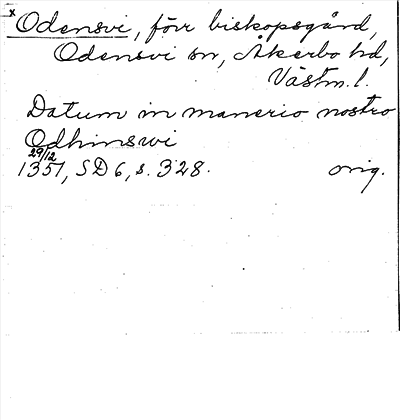 x Odensvi, förr biskopsgård,
Odensvi sn, Åkerbo hd,
Västm. l.
Datum in manerio nostro
Odhinswi
29/12
1351, SD 6, s. 328. orig.